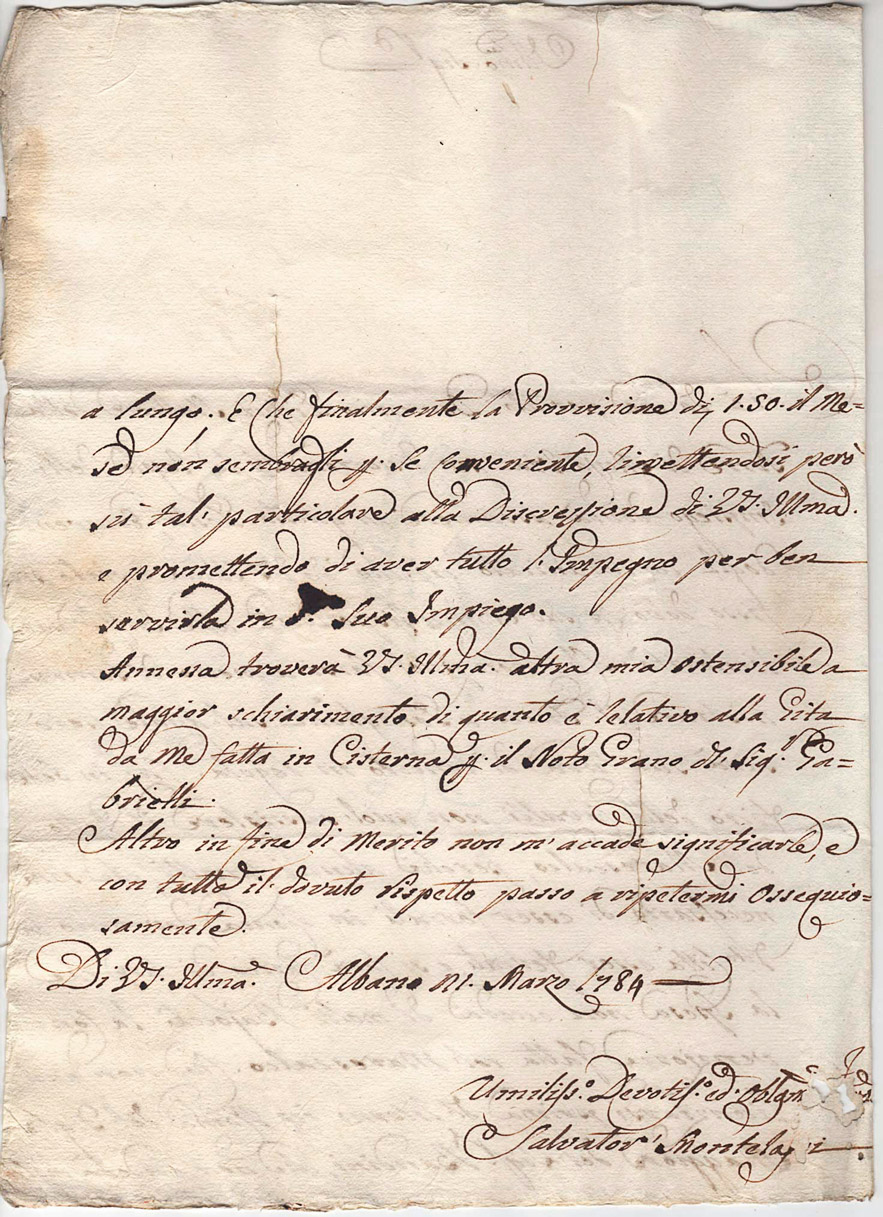 a lungo. E Che finalmente la Provvisione di 1.50. il Me=
se non sembragli p. se conveniente, rimettendosi però
sù tal' particolare alla Discrezzione di VS. Illma.
e promettendo di aver tutto l'Impegno per ben
servirla in Suo Impiego.
Annessa troverà VS. Illma. altra mia ostensibile a
maggior schiarimento di quanto è relativo alla Gita
da Me fatta in Cisterna p. il Noto Grano del Sigr. Ga=
brielli.
Altro in fine di Merito non m'accade significarle, e
con tutto il dovuto rispetto passo a ripetermi Ossequio=
samente.
Di VS. Illma. Albano Marzo 1784
Umiliss.o Devotis.o ed Oblgm
Salvator'